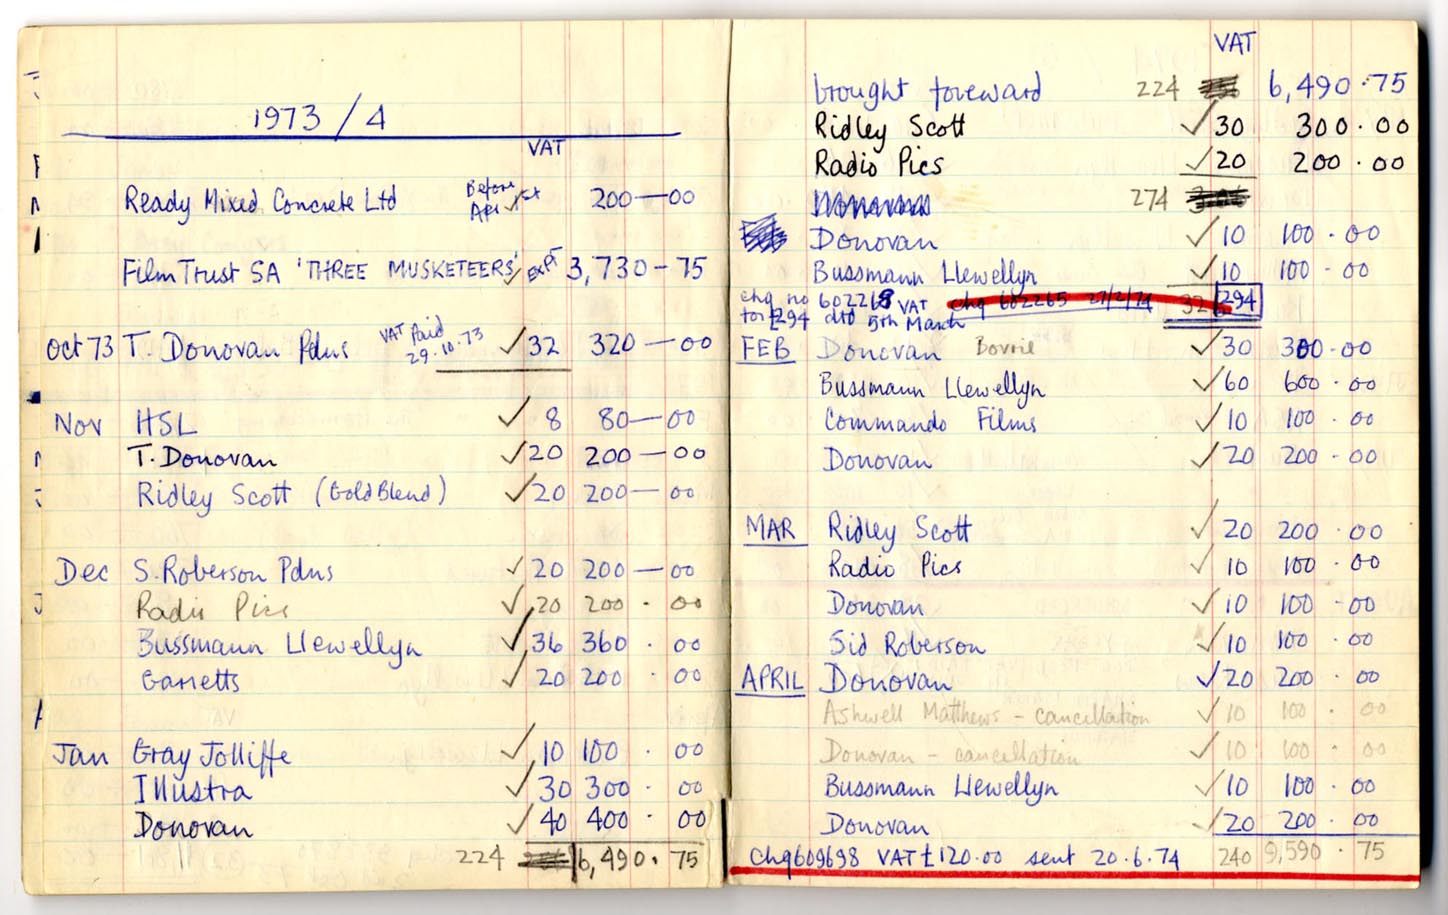 1973/4
VAT
Ready Mixed Concrete Ltd Before Apr 1st 200—00
Film Trust SA 'THREE MUSKETEERS' EXPT 3,730—75
Oct 73 T. Donovan Pdns VAT Paid 29.10.73 ✓ 32 320—00
Nov HSL ✓ 8 80—00
T. Donovan ✓ 20 200—00
Ridley Scott (Gold Blend) ✓ 20 200—00
Dec S. Roberson Pdns ✓ 20 200—00
Radio Pics ✓ 20 200.00
Bussmann Llewellyn ✓ 36 360.00
Garretts ✓ 20 200.00
Jan Gray Jolliffe ✓ 10 100.00
Illustra ✓ 30 300.00
Donovan ✓ 40 400.00
224 6,490.75
VAT
brought foreward 224 6,490.75
Ridley Scott ✓ 30 300.00
Radio Pics ✓ 20 200.00
274
Donovan ✓ 10 100.00
Bussmann Llewellyn ✓ 10 100.00
chq no 602268 VAT chq 602265 27/2/74 294
for £294 dtd 5th March
FEB Donovan Bovril ✓ 30 300.00
Bussmann Llewellyn ✓ 60 600.00
Commando Films ✓ 10 100.00
Donovan ✓ 20 200.00
MAR Ridley Scott ✓ 20 200.00
Radio Pics ✓ 10 100.00
Donovan ✓ 10 100.00
Sid Roberson ✓ 10 100.00
APRIL Donovan ✓ 20 200.00
Ashwell Matthews - cancellation ✓ 10 100.00
Donovan - cancellation ✓ 10 100.00
Bussmann Llewellyn ✓ 10 100.00
Donovan ✓ 20 200.00
Chq 609698 VAT £120.00 sent 20.6.74 240 9,590.75